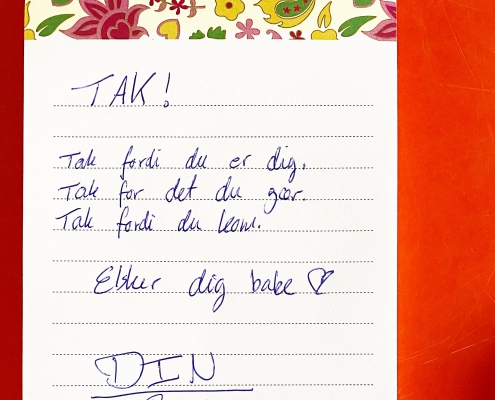 TAK!
Tak fordi du er dig.
Tak for det du gør.
Tak fordi du kom.
Elsker dig babe ♡
DIN